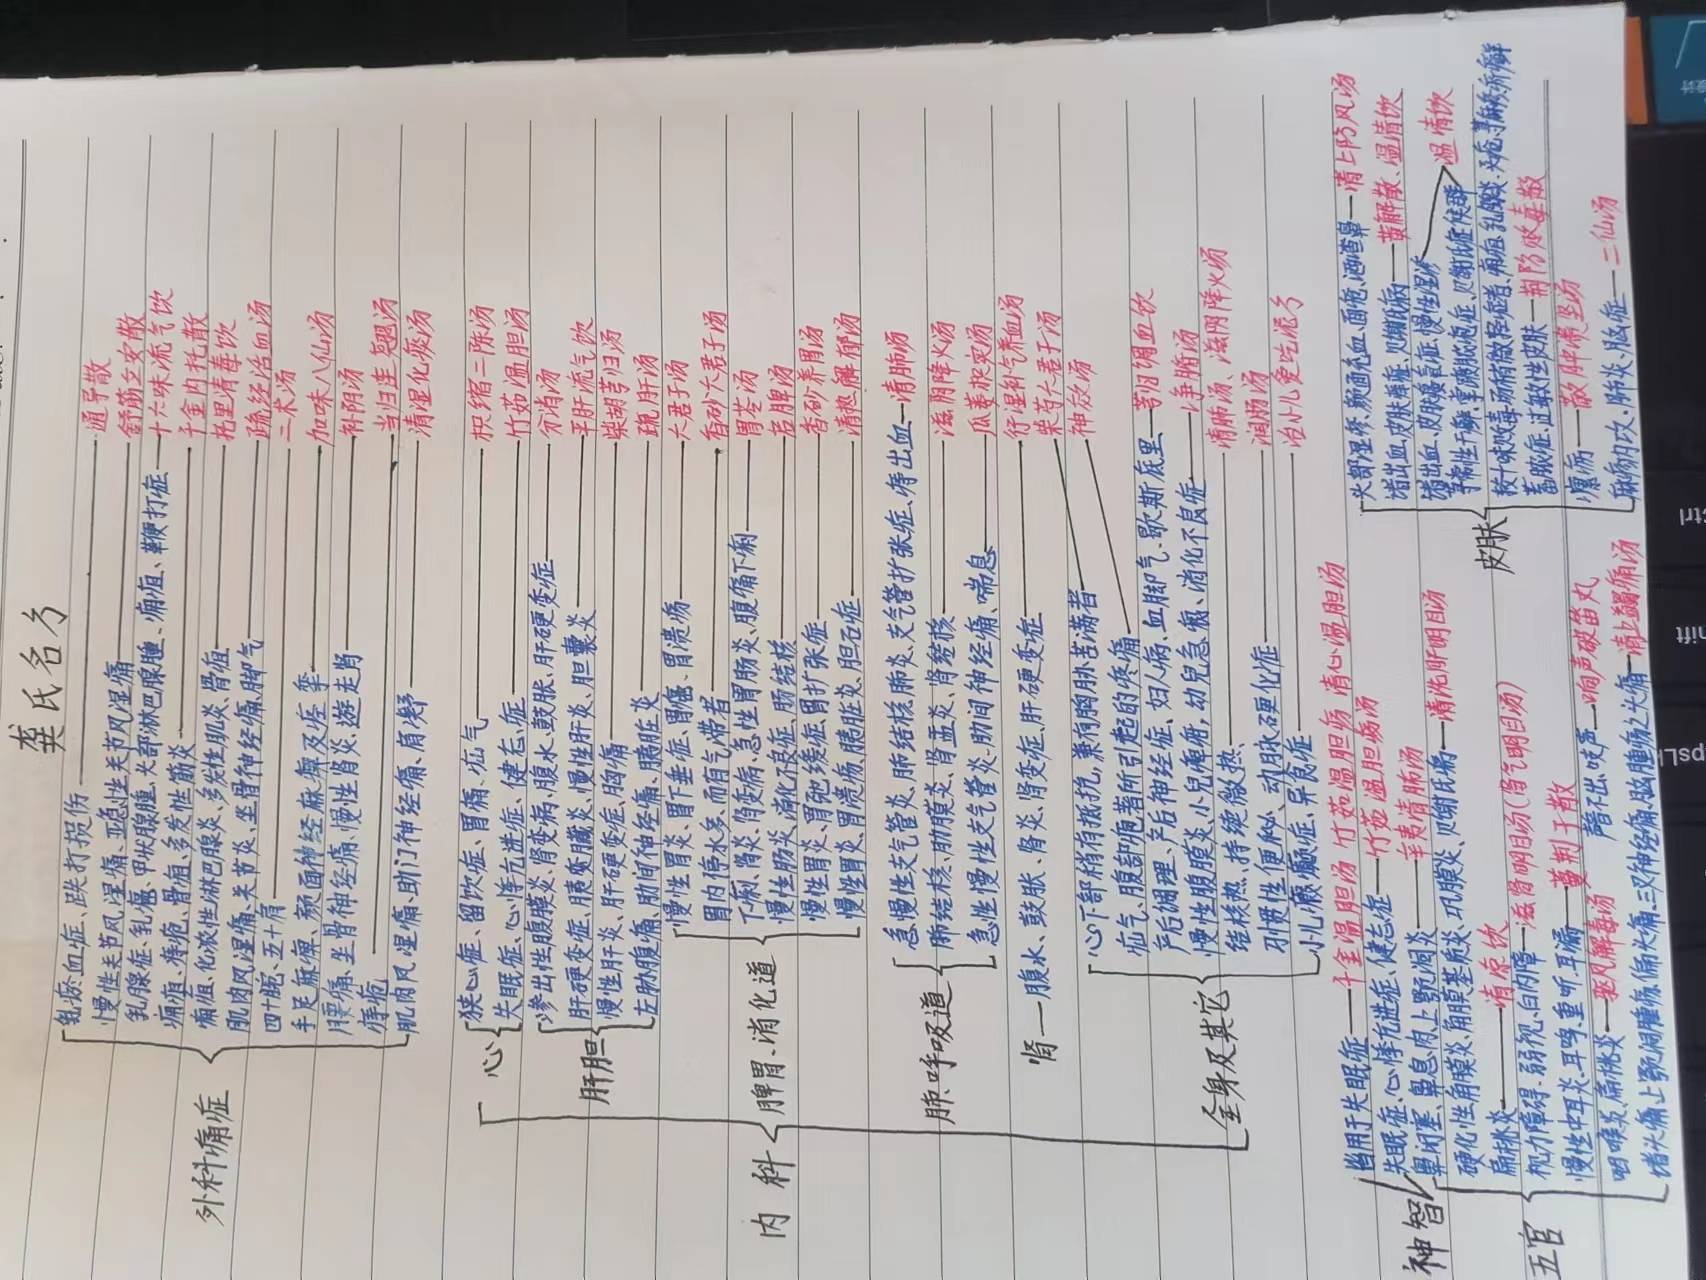 龚氏名方
外科痛症
乳瘀血症、跌打损伤——通导散
慢性关节风湿痛、亚急性关节风湿痛——舒筋立安散
乳腺症、乳癌、甲状腺腫、头部淋巴腺腫、痈疽、鞭打症——十六味流气饮
痈疽、痔疮、骨疽、多发性崩炎——千金内托散
痈疽、化浓性淋巴腺炎、多发性肌炎、骨疽——托里消毒饮
肌肉风湿痛、关节炎、坐骨神经痛、脚气——疏经活血汤
四十腕、五十肩——二术汤
手足麻痹、颜面神经麻痹及痉挛——加味八仙汤
腰痛、坐骨神经痛、慢性肾炎、遊走肾——补阴汤
痔疮——当归连翘汤
肌肉风湿痛、助门神经痛、肩舒——清湿化痰汤
内科
心
狭心症、留饮症、胃痛、疝气——枳缩二陈汤
失眠症、心悸亢进症、健忘症——竹茹温胆汤
肝胆
渗出性腹膜炎、肾变病、腹水、鼓胀、肝硬变症——分消汤
肝硬变症、胰臓炎、慢性肝炎、胆囊炎——平肝流气饮
慢性肝炎、肝硬变症、胸痛——柴胡芎归汤
左肋腹痛、肋间神经痛、胰脏炎——疏肝汤
脾胃、消化道
慢性胃炎、胃下垂症、胃癌、胃溃疡——六君子汤
胃内停水多、而有气滞者——香砂六君子汤
下痢、肾炎、肾变病、急性胃肠炎、腹痛下痢——胃苓汤
慢性肠炎、消化不良症、肠结核——启脾汤
慢性胃炎、胃弛缓症、胃扩张症——香砂养胃汤
慢性胃炎、胃溃疡、胰脏炎、胆石症——清热解郁汤
肺、呼吸道
急慢性支气管炎、肺结核、肺炎、支气管扩张症、痔出血——清肺汤
肺结核、肋膜炎、肾盂炎、肾结核——滋阴降火汤
急性慢性支气管炎、肋间神经痛、喘息——瓜蒌枳实汤
肾——腹水、鼓胀、肾炎、肾变症、肝硬变症——行湿补气养血汤
全身及其它
心下部稍有抵抗，兼有胸胁苦满者——柴芍六君子汤
疝气、腹部病者所引起的疼痛——神效汤
产后调理、产后神经症、妇人病、血脚气、歇斯底里——芎归调血饮
慢性腹膜炎、小儿疳病、幼兒急癎、消化不良症——净腑汤
结核热、持续微热——清肺汤 滋阴降火汤
习惯性便秘、动脉硬化症——润肠汤
小儿癫癎症、异食症——治小儿爱吃泥方
神智
曾用于失眠症——千金温胆汤 竹茹温胆汤 清心温胆汤
失眠症、心悸亢进症、健忘症——竹茹温胆汤
五官
鼻闭塞、鼻息肉、上颚洞炎——辛夷清肺汤
硬化性角膜炎、角膜基质炎、巩膜炎、贝谢氏病——清洗肝明目汤
扁桃炎——清凉饮
视力障碍、弱视、白内障——滋肾明目汤(肾气明目汤)
慢性中耳炎、耳鸣、重听、耳漏——蔓荆子散
咽喉炎、扁桃炎——驱风解毒汤
声不出吱声——响声破笛丸
诸头痛、上颚洞腫疡、偏头痛、三叉神经痛、脑腫疡之头痛——清上蠲痛汤
皮肤
头部湿疹、颜面充血、面皰、酒渣鼻——清上防风汤
诸出血、皮肤瘙痒症、贝谢氏病——黄解散、温清饮
诸出血、皮肤瘙痒症、慢性湿疹
寻常性干癣、掌蹠脓疱症、贝谢氏症候群——温清饮
较十味败毒汤稍微轻症者、痈疽、乳腺炎、炎疮、荨麻疹、疥癣
蓄脓症、过敏性皮肤——荆防败毒散
瘰疬——散肿溃坚汤
麻疹内攻、肺炎、脑症——二仙汤